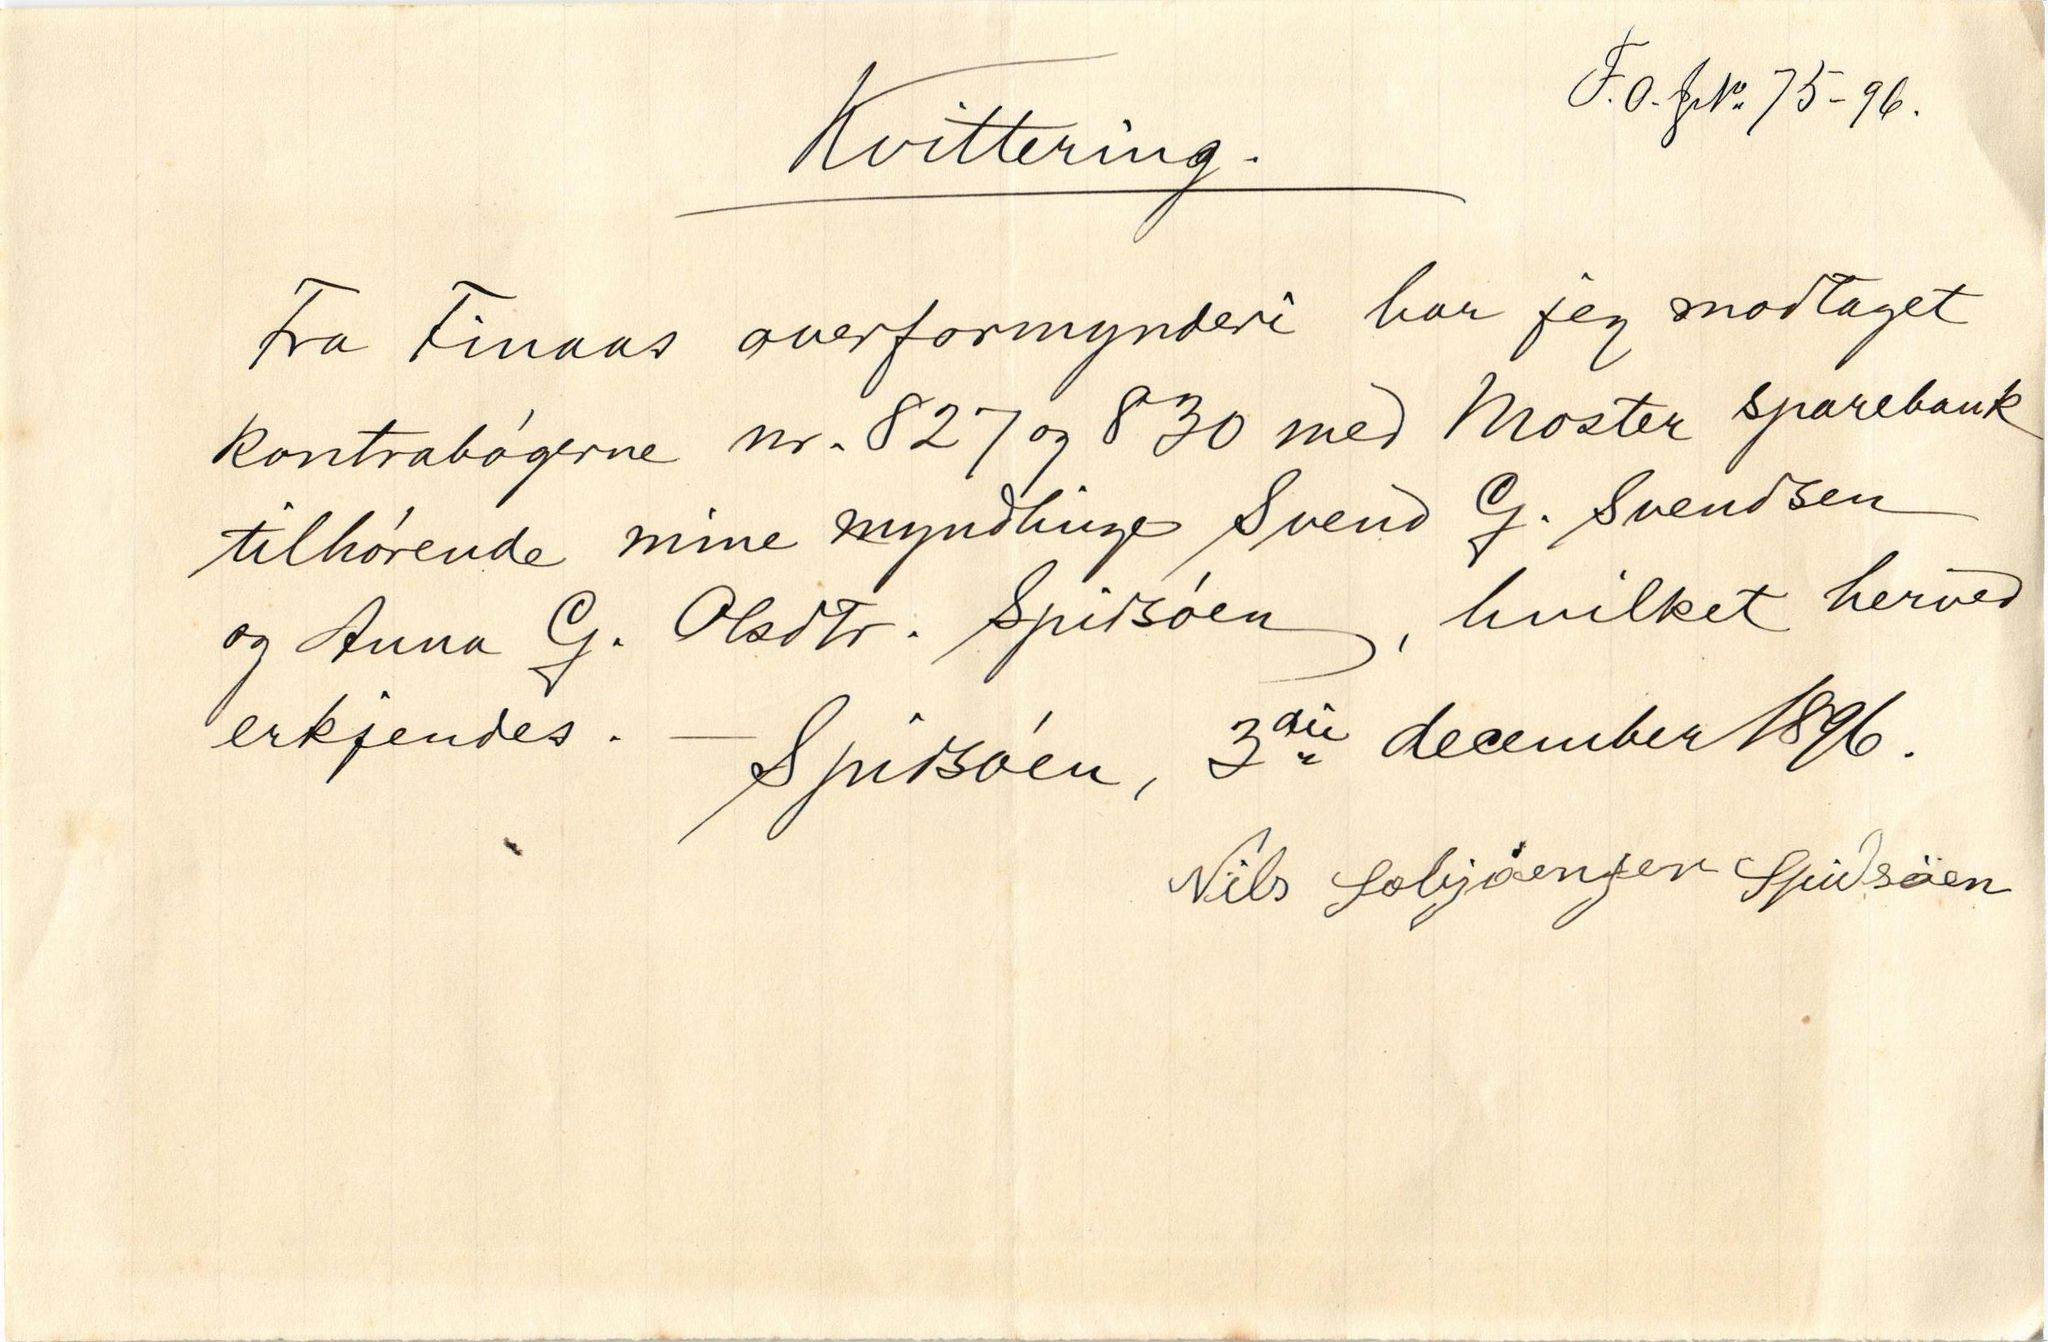 F.O. JNo. 75-96.
Kvittering.
Fra Finaas overformynderi har jeg modtaget
kontrabógerne nr. 827 og 830 med Moster sparebank
tilhórende mine myndlinge Svend G. Svendsen
og Anna G. Olsdtr. Spidsóen, hvilket herved
erkjendes. —
Spidsóen, 3die december 1896.
Nils Spidsöen